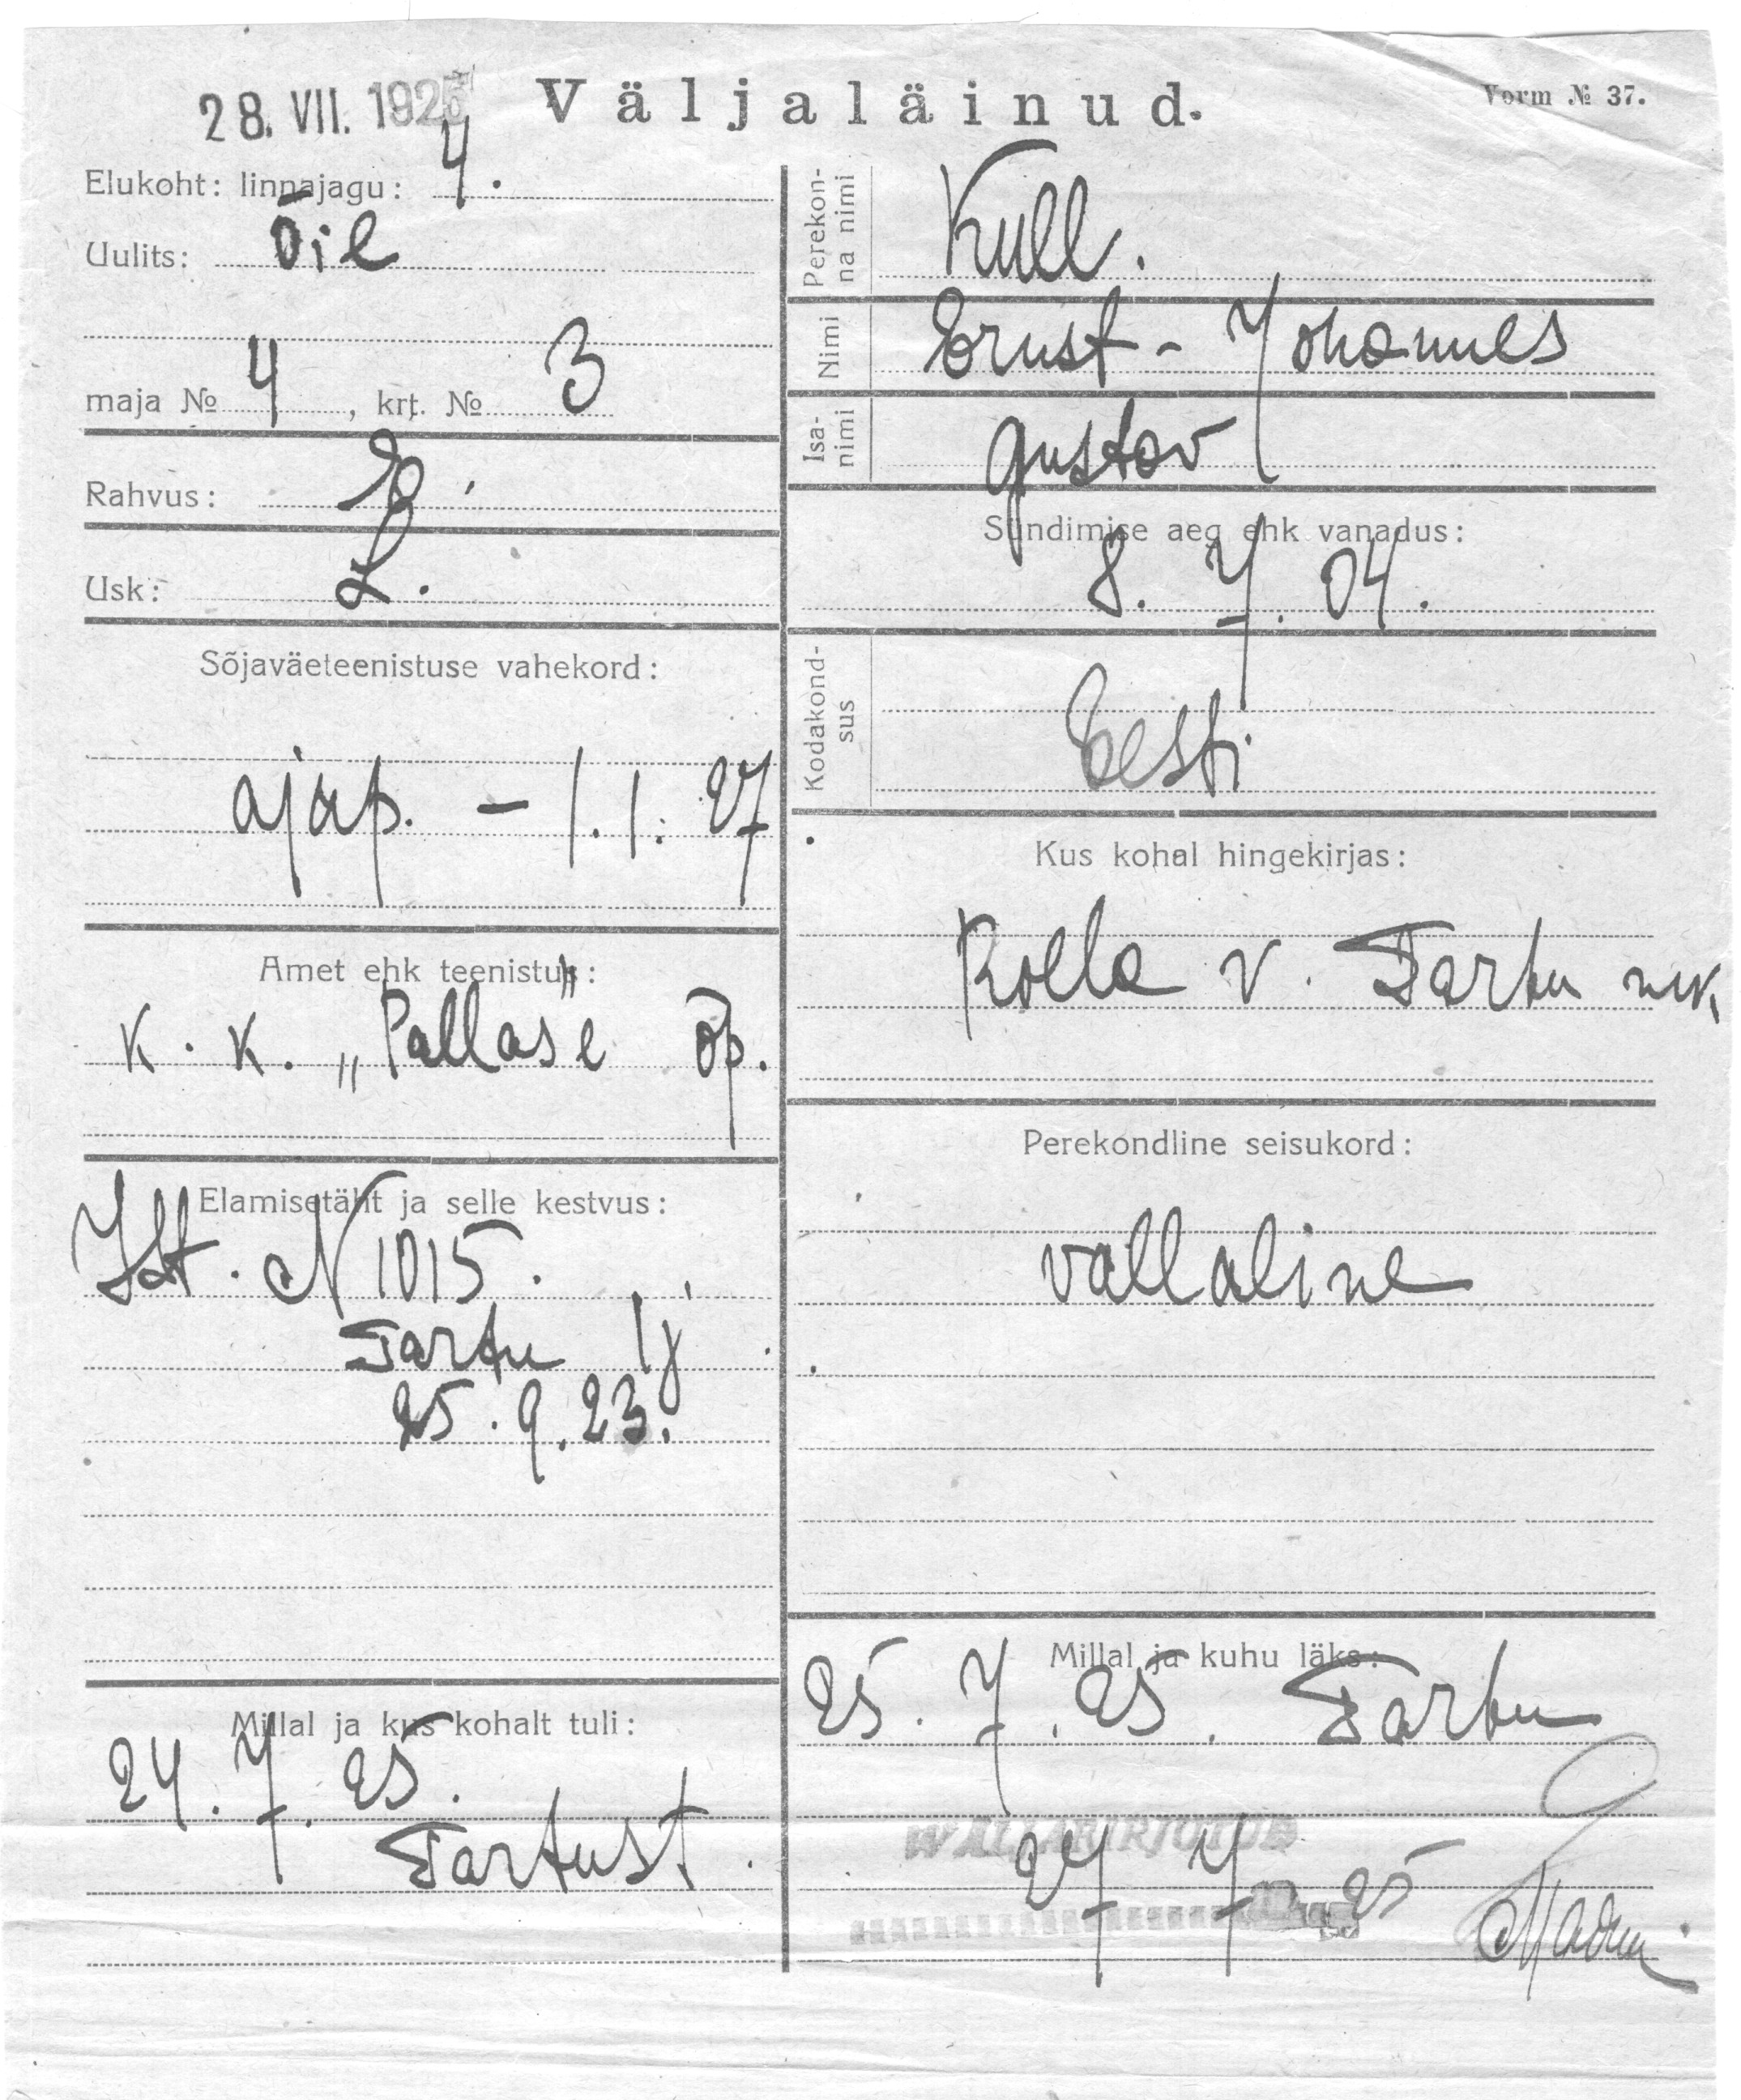 28. VII. 1925
Väljaläinud.
Vorm № 37.
Elukoht: linnajagu: 4.
Uulits: Õie
maja № 4, krt. № 3
Rahvus: E.
Usk: L.
Sõjaväeteenistuse vahekord:
ajap. – 1. 1. 27
Amet ehk teenistus:
K. K. „Pallas"e õp.
Elamisetäht ja selle kestvus:
Ist. N 1015.
Tartu lj.
25. 9. 23.
Millal ja kus kohalt tuli:
24. 7. 25.
Tartust.
Perekonna nimi
Kull.
Nimi
Ernst - Johannes
Isanimi
Gustav
Sündimise aeg ehk vanadus:
8. 7. 04.
Kodakondsus
Eesti
Kus kohal hingekirjas:
v. Tartu mk.
Perekondline seisukord:
vallaline
Millal ja kuhu läks:
25. 7. 25. Tartu
WÄLJAKIRJUTUD
27 7 25